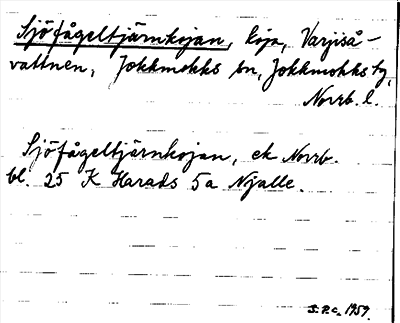 Sjöfågeltjärnkojan, koja, Varjiså-
vattnen, Jokkmokks sn, Jokkmokks tg,
Norrb. l.
Sjöfågeltjärnkojan, ek Norrb.
bl. 25 K Harads 5a Njalle.
1959.